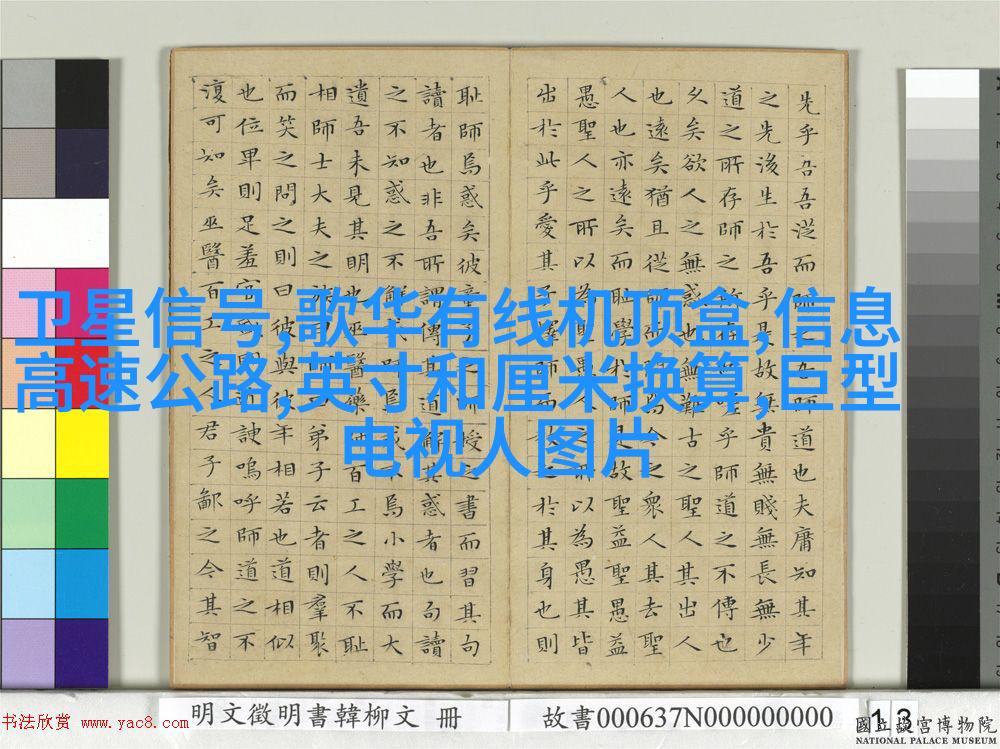 先乎吾吾從而師之吾師道也夫庸知其年
之先後生於吾乎是故無貴無賤無長無少
道之所存師之所存也嗟乎師道之不傳也
久矣欲人之無惑也難古之聖人其出人
也遠矣猶且從師而問焉今之眾人其去聖
人也亦遠矣而恥學於師是故聖益聖愚益
愚聖人之所以為聖愚人之所以為愚其皆
出於此乎愛其子擇師而教之於其身也則
恥師焉惑矣彼童子之師授之書而習其句
讀者也非吾所謂傳其道解其惑者也句讀
之不知惑之不解或師焉或不焉小學而大
遺吾未見其明也巫醫樂師百工之人不恥
相師士大夫之族曰師曰弟子云者則羣聚
而笑之問之則曰彼與彼年相若也道相似
也位卑則足羞官盛則近諛嗚呼師道之不
復可知矣巫醫百工之人君子鄙之今其智
卫星信号,歌华有线机顶盒,信息
高速公路,英寸和厘米换算,巨型
电视人图片
明文徵明書韓柳文 冊
故書000637N000000000
13
书法欣赏 www.yac8.com
國立故宮博物院
NATIONAL PALACE MUSEUM